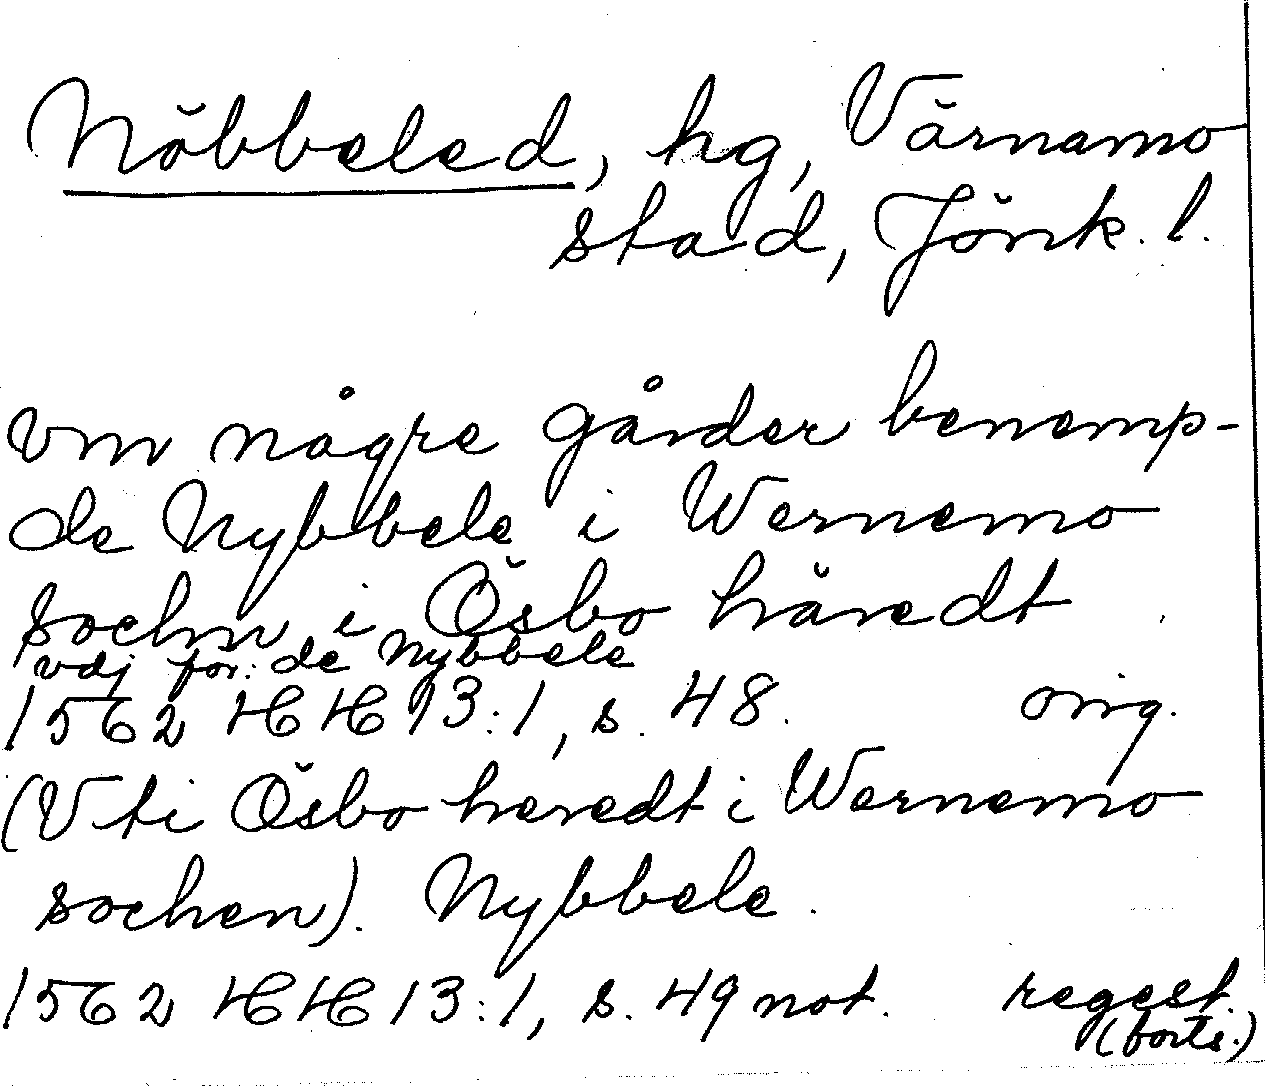 Nöbbeled, hg, Värnamo
stad, Jönk. l.
vm någre gårder benemp-
de Nybbele i Wernemo
sochn i Ösbo häredt
vdj för: de Nybbele
1562 HH 13:1, s. 48. orig.
(Vti Ösbo heredt i Wernemo
sochen). Nybbele.
1562 HH 13:1, s. 49 not. regest.
(forts.)